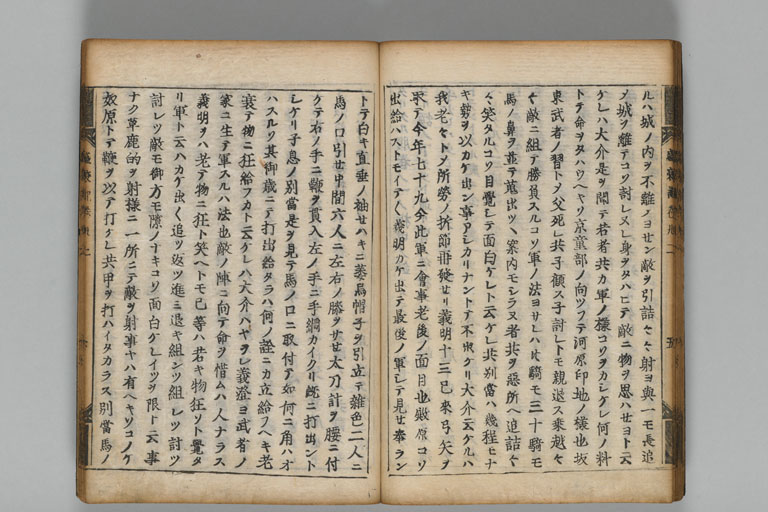 ルハ城ノ内ヲ不離ノヨせン敵ヲ引詰々々射ヨ奥一モ長追
メ城ヲ離テコソ討レメ身ヲタハヒテ敵ニ物ヲ思ハせヨト云
ケレハ大介是ヲ聞テ若者共カ軍ノ様コソヲカシケレ何ノ料
トテ命ヲタハウヘキソ京童部ノ向ツフテ河原印地ノ様也坂
東武者ノ習トメ父死レ共子顧ス子討レトモ親退ス乗越々
々敵ニ組テ勝負スルコソ軍ノ法ヨサレハ廿騎モ三十騎モ
馬ノ鼻ヲ並テ蒐出ツヽ案内モシラヌ者共ヲ悪所ヘ追詰々
々笑タルコソ目覚シテ面白ケレト云ケレ共別當ハ幾程ヒナ
キ勢ヲ以カケ出ン事アシカリナントテ不出ケリ大介云ケルハ
我老々トノ所勞ノ折節 義明十三已來弓矢ヲ
取テ今年七十九今此軍ニ會事老後ノ面目也殿原コソ
出給ハストモ 義明カケ出テ最後ノ軍シテ見せ奉ラン
トテ白キ直垂ノ袖せハキニ萎烏帽子ヲ引立テ雜色二人ニ
馬ノ口引せ中間六人ニ左右ノ膝ヲサせ太刀計ヲ腰ニ付
クテ右ノ手ニ鞭ヲ貫入左ノ手ニ手綱カイクリ既ニ打出ント
シケリ子息ノ別當是ヲ見テ馬ノ口ニ取付テ如何ニ角ハオ
ハスルソ其御歳ニテ打出給タラハ何ノ詮ニカ立給フヘキ老
衰テ物ニ狂給フカト云ケレハ大介ハヤヲレ義澄ヨ武者ノ
家ニ生テ軍スルハ法也敵ノ陣ニ向テ命ヲ惜ムハ人ナラス
義明ヲハ老テ物ニ狂ト笑ヘトモ己等ハ若キ物狂ソト覺タ
リ軍ト云ハカケ出く追ツ返ツ進ミ退キ組ンツ組レツ討ツ
討レツ敵モ御方モ隙ノナキコソ面白ケレイツヲ限ト云事
ナク草鹿的ヲ射様ニ一所ニテ敵ヲ射事ヤハ有ヘキソコノケ
奴原トテ鞭ヲ以テ打ケレ共甲ヲ打ハイタカラス別當馬ノ